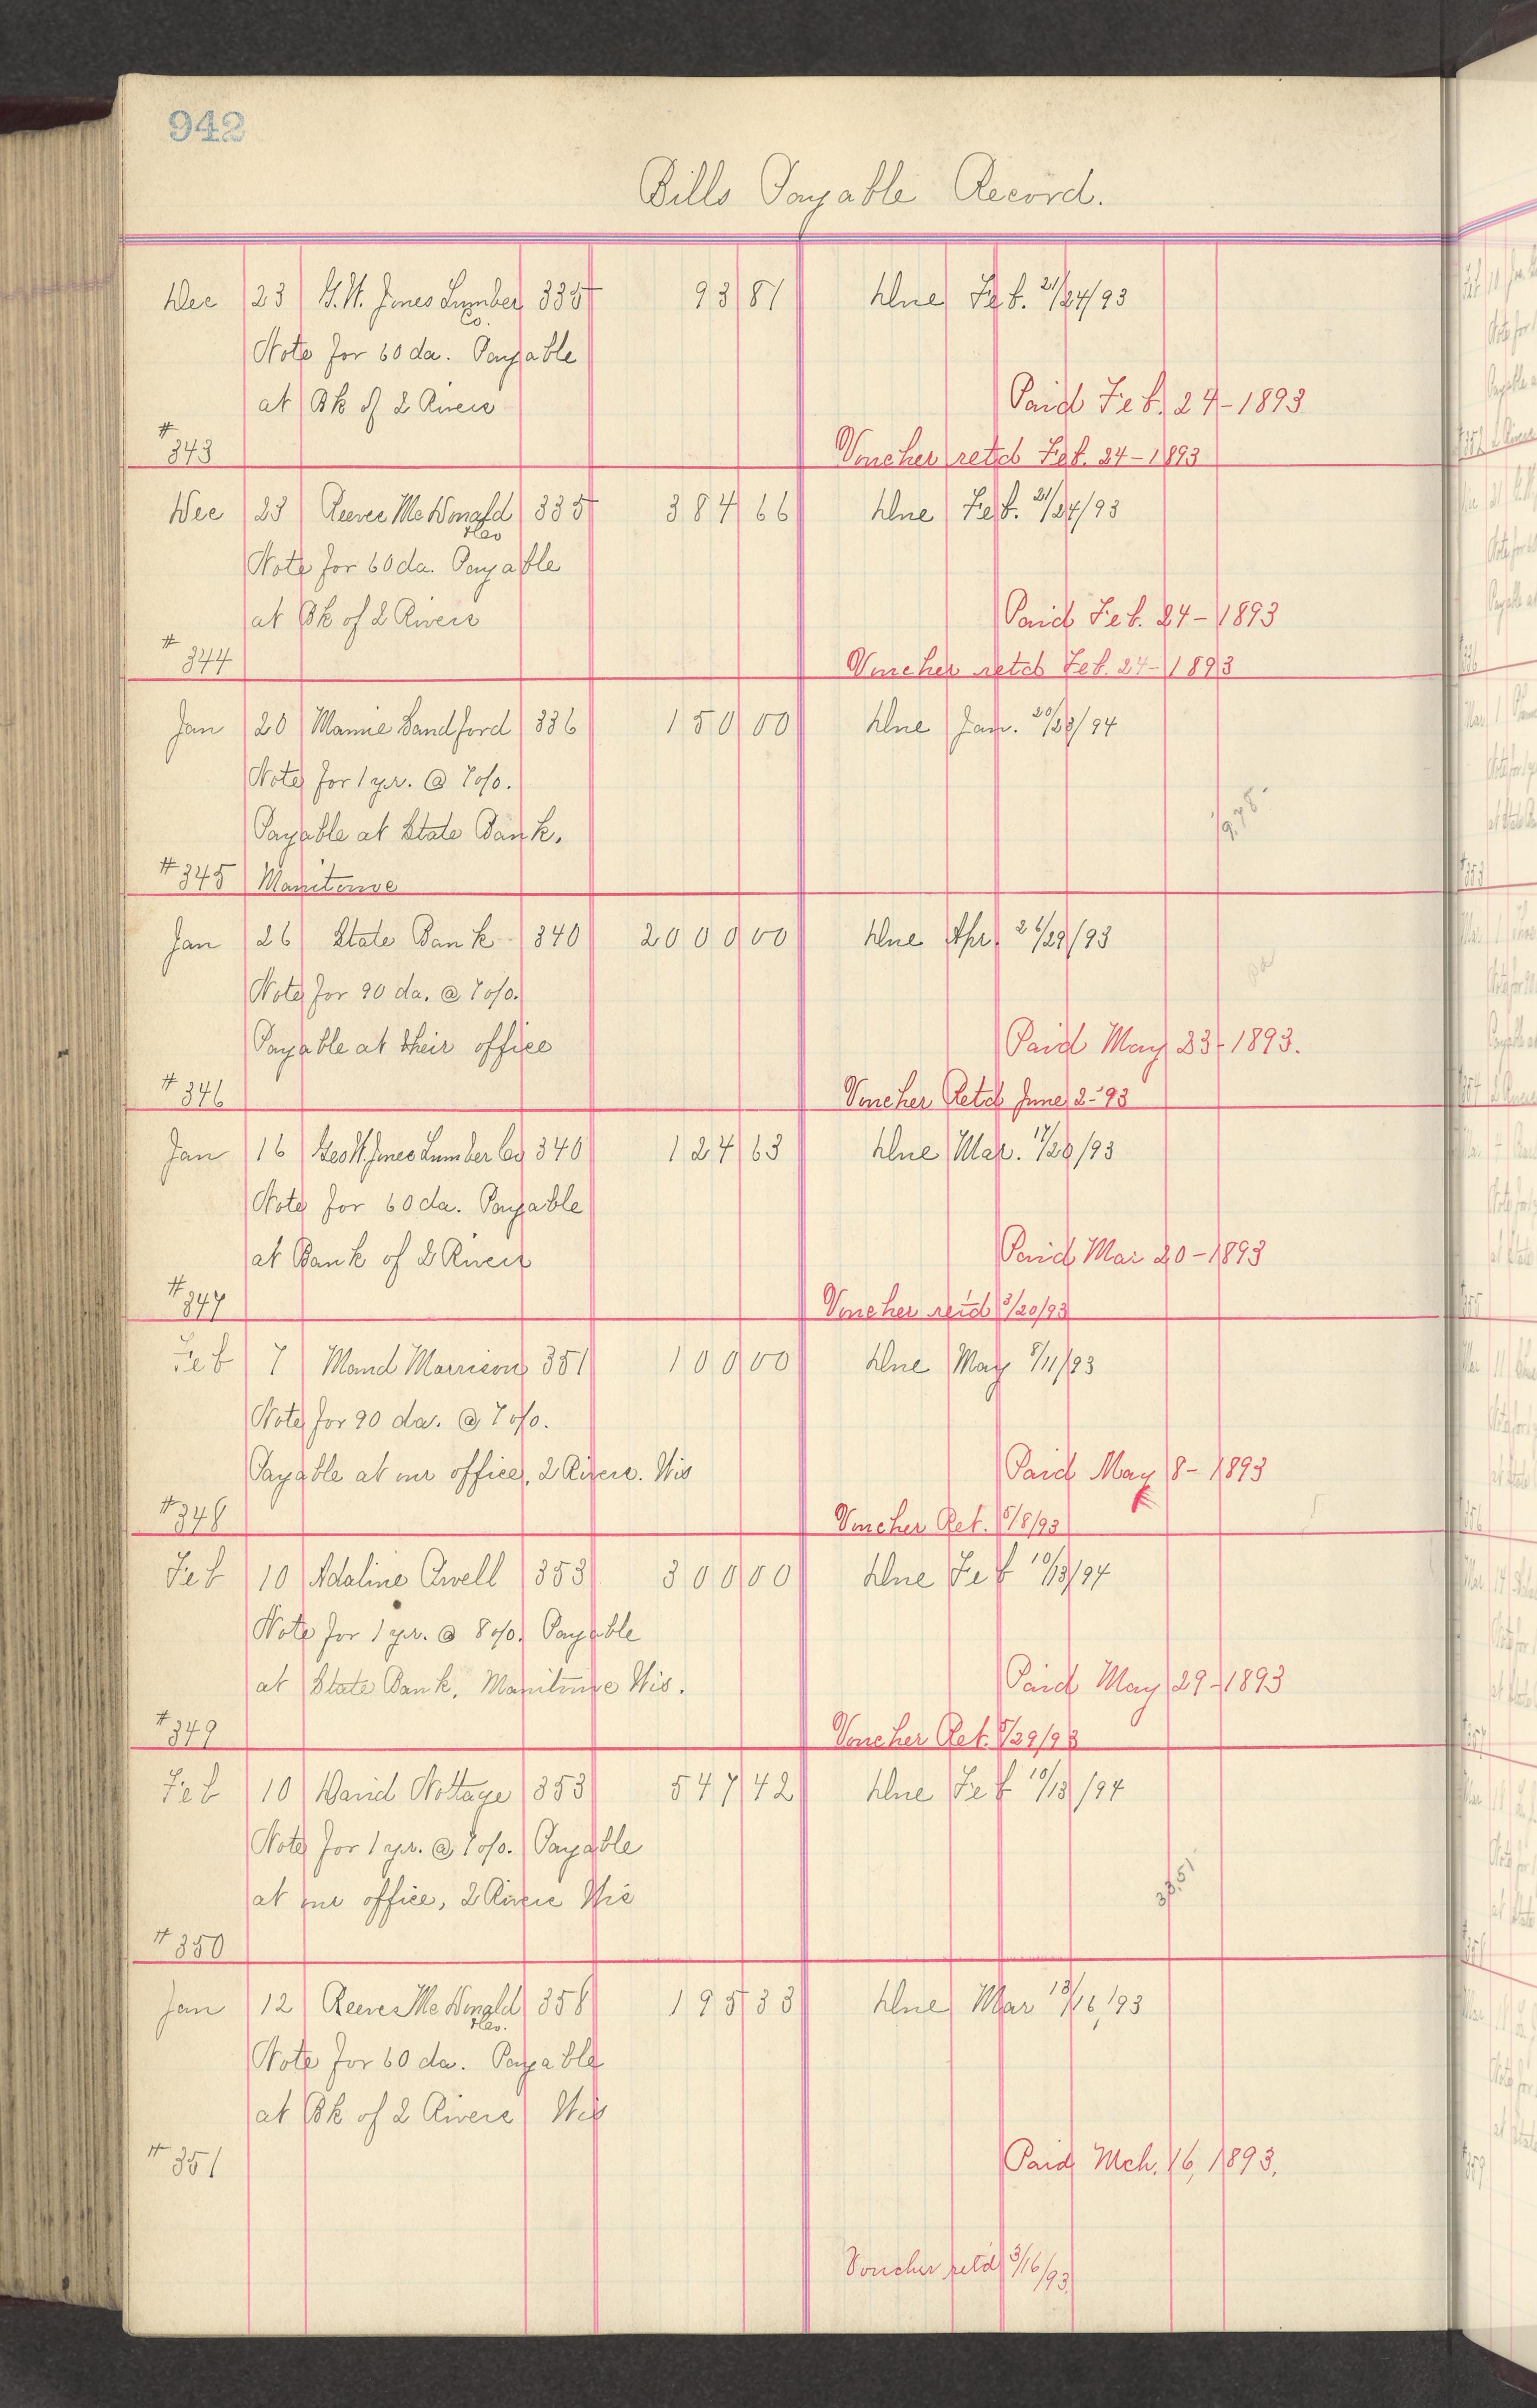 942
Bills Payable Record.
Dec 23 G.W. Jones Lumber 335 93 81 Due Feb. 21/24/93
Co.
Note for 60 da. Payable
at Bk of 2 Rivers Paid Feb. 24-1893
# 343 Voucher retd Feb. 24-1893
Dec 23 Reeves McDonald 335 384 66 Due Feb. 21/24/93
Note for 60 da. Payable
at Bk of 2 Rivers Paid Feb. 24-1893
# 344 Voucher retd Feb. 24-1893
Jan 20 Mamie Sandford 336 150 00 Due Jan. 20/23/94
Note for 1 yr. @ 7 o/o.
Payable at State Bank,
# 345 Manitowoc
Jan 26 State Bank 340 2000 00 Due Apr. 26/29/93
Note for 90 da. @ 7 o/o.
Payable at their office Paid May 23-1893.
# 346 Voucher Retd June 2-'93
Jan 16 Geo W. Jones Lumber Co 340 124 63 Due Mar. 17/20/93
Note for 60 da. Payable
at Bank of 2 Rivers Paid Mar 20-1893
# 347 Voucher retd 3/20/93
Feb 7 Maud Morrison 351 100 00 Due May 8/11/93
Note for 90 da. @ 7 o/o.
Payable at our office, 2 Rivers. Wis Paid May 8-1893
# 348 Voucher Ret. 5/8/93
Feb 10 Adaline Cwell 353 300 00 Due Feb 10/13/94
Note for 1 yr. @ 8 o/o. Payable
at State Bank, Manitowoc Wis. Paid May 29-1893
# 349 Voucher Ret. 5/29/93
Feb 10 David Nottage 353 547 42 Due Feb 10/13/94
Note for 1 yr. @ 7 o/o. Payable
at our office, 2 Rivers Wis
# 350
Jan 12 Reeves McDonald 358 195 33 Due Mar 13/16/93
Note for 60 da. Payable
at Bk of 2 Rivers Wis
# 351 Paid Mch. 16, 1893.
Voucher retd 3/16/93